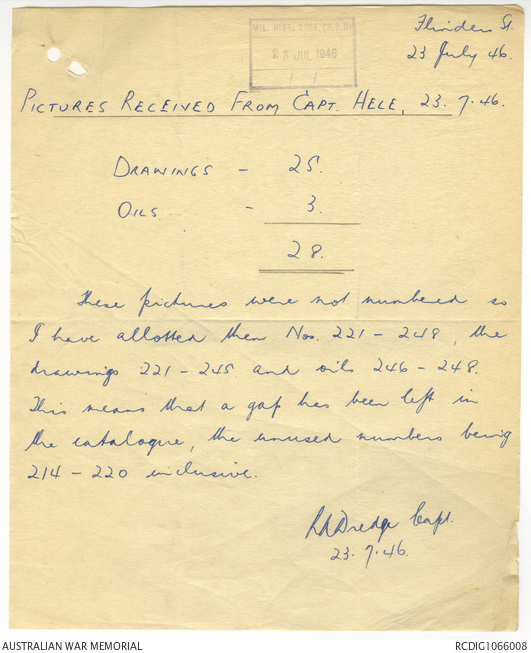 Flinders St.
23 July 46.
MIL. HIST. SECT.
23 JUL 1946
/ /
PICTURES RECEIVED FROM CAPT. HELE, 23.7.46.
DRAWINGS - 25.
OILS - 3.
28.
These pictures were not numbered so
I have allotted them Nos. 221 - 248, the
drawings 221 - 245 and oils 246 - 248.
This means that a gap has been left in
the catalogue, the unused numbers being
214 - 220 inclusive.
Dredge Capt.
23.7.46.
AUSTRALIAN WAR MEMORIAL
RCDIG1066008